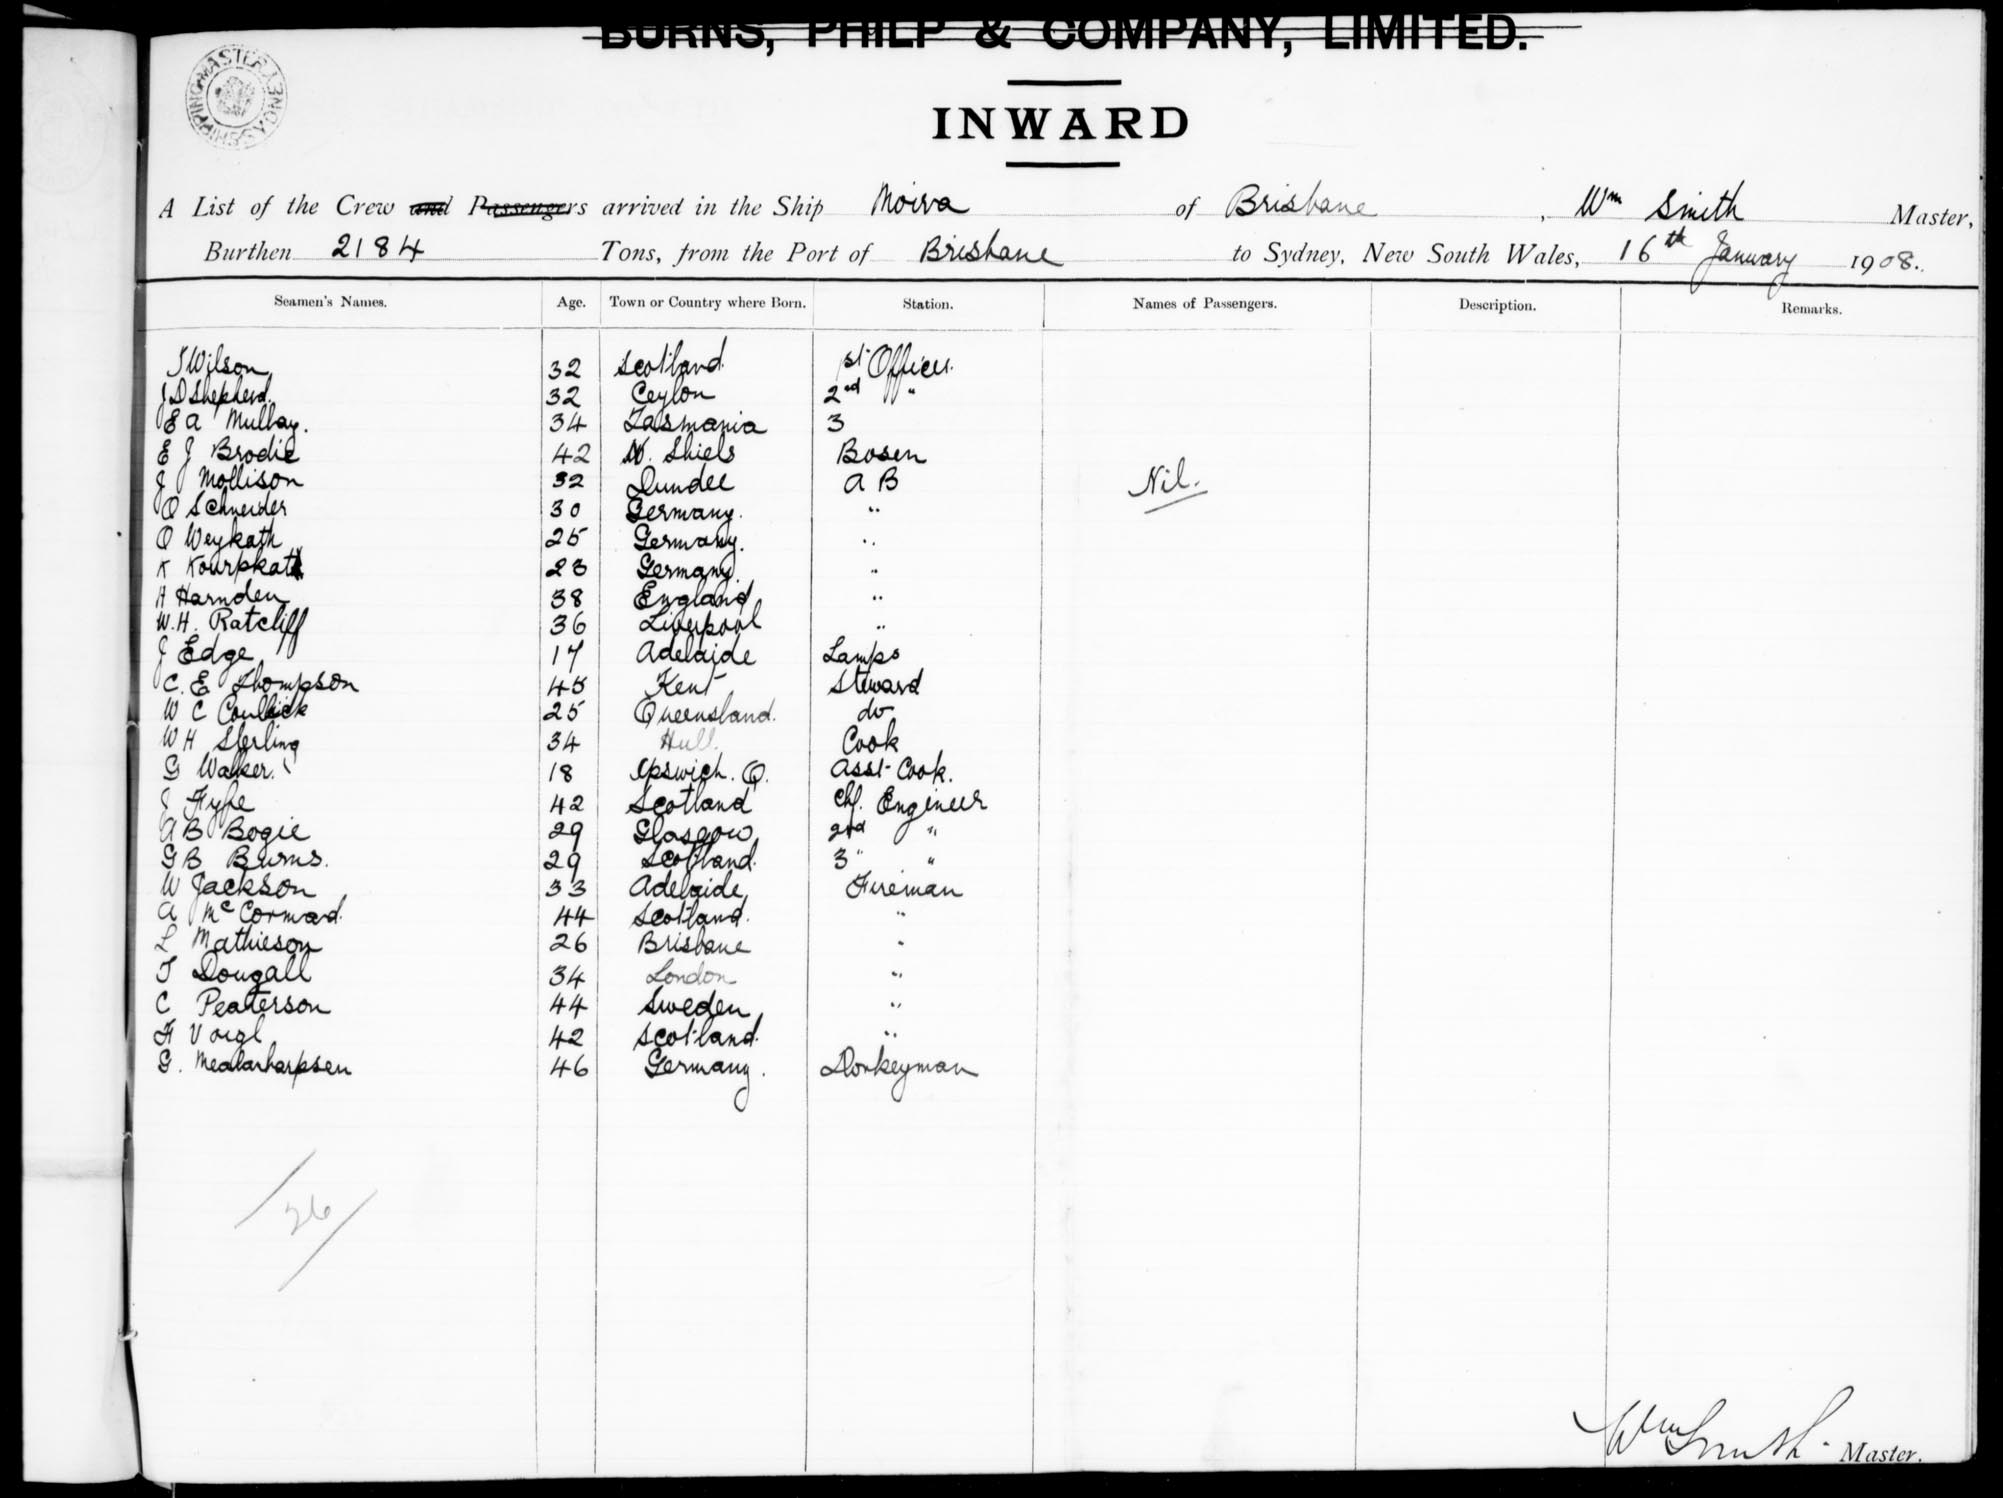 BURNS, PHILP & COMPANY, LIMITED.
SHIPPING MASTER SYDNEY
INWARD
A List of the Crew and Passengers arrived in the Ship Moira of Brisbane, Wm Smith Master,
Burthen 2184 Tons, from the Port of Brisbane to Sydney, New South Wales, 16th January 1908.
Seamen's Names. Age. Town or Country where Born. Station. Names of Passengers. Description. Remarks.
J Wilson 32 Scotland 1st Officer.
J D Shepherd. 32 Ceylon 2nd "
E A Mulbay. 34 Tasmania 3
E J Brodie 42 N. Shiels Bosen
J Mollison 32 Dundee A B Nil.
O Schneider 30 Germany. "
O Weykath 25 Germany. "
K Kourpkath 23 Germany. "
A Harnden 38 England "
W. H. Ratcliff 36 Liverpool "
J Edge 17 Adelaide Lamps
C. E Thompson 45 Kent Steward
W C 25 Queensland. do
W H Sterling 34 Hull. Cook
G Walker. 18 Ipswich. Q. Asst Cook.
J Fyfe 42 Scotland Chf. Engineer
A B Bogie 29 Glasgow 2nd "
G B Burns. 29 Scotland. 3" "
W Jackson 33 Adelaide Fireman
A McCormad. 44 Scotland. "
L Mathieson 26 Brisbane "
T Dougall 34 London "
C Peaterson 44 Sweden "
H Voigl 42 Scotland. "
G. 46 Germany. Donkeyman
26
Wm Smith. Master.